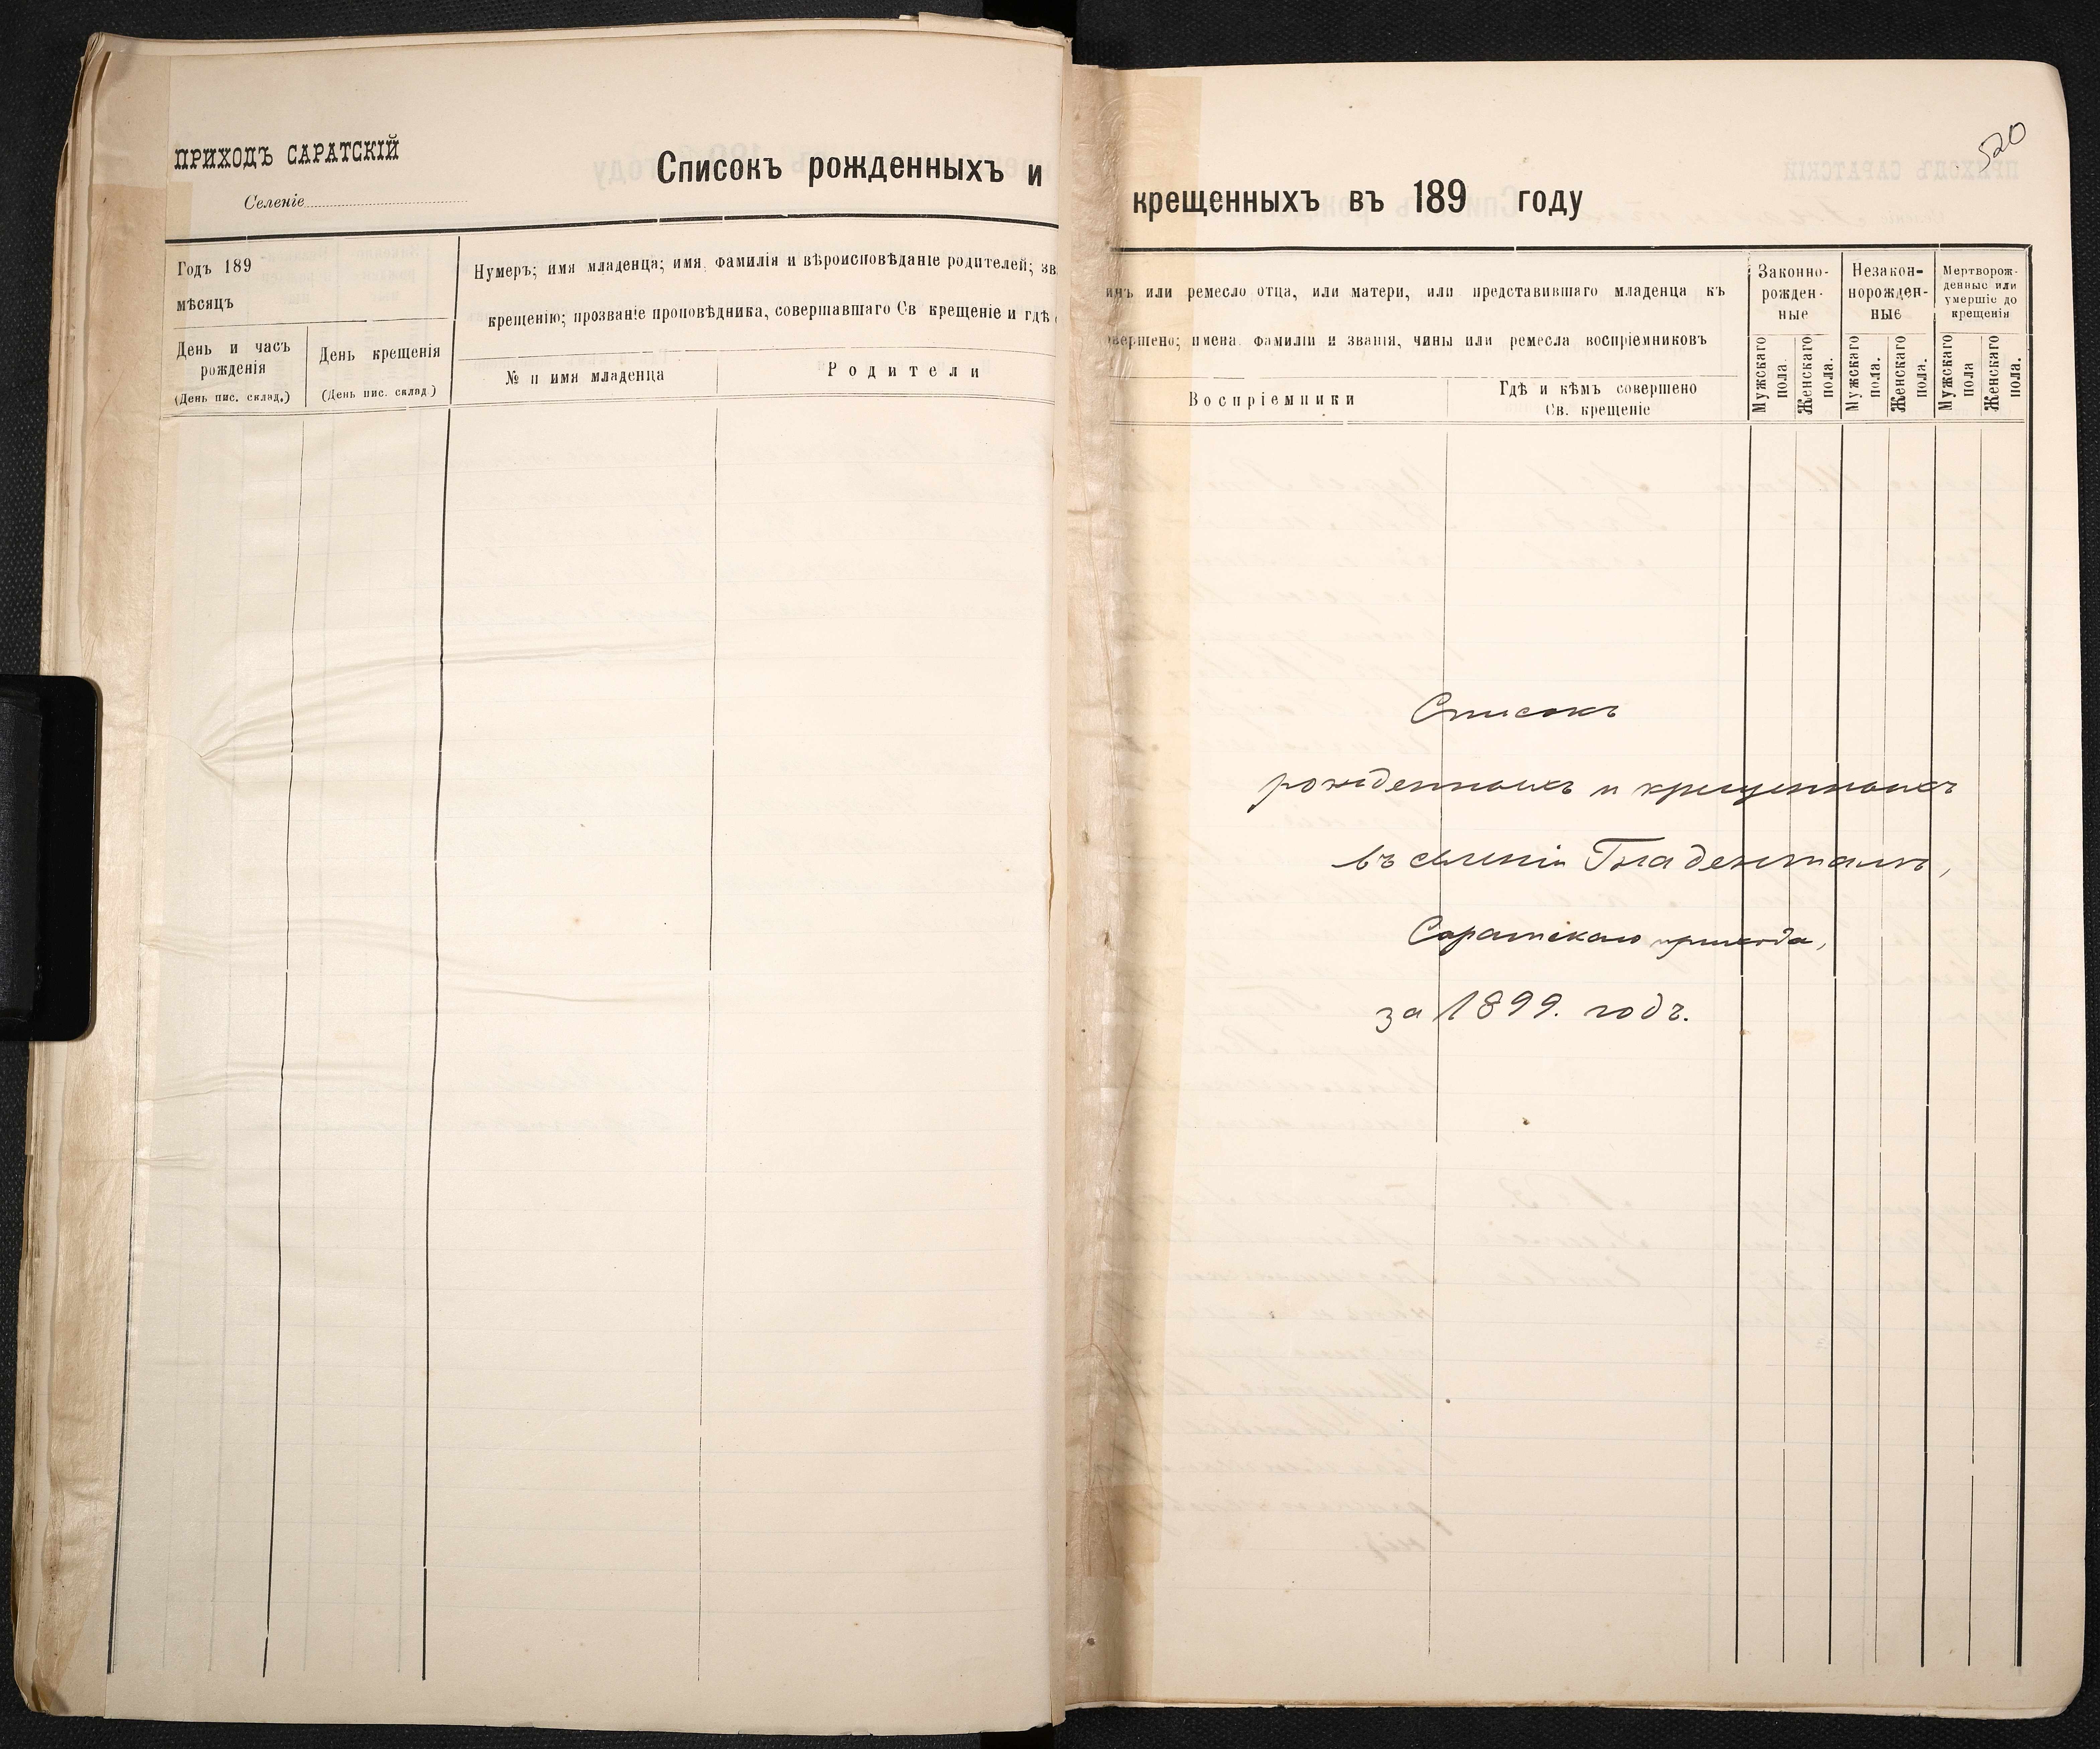 ПРИХОДЪ САРАТСКІЙ
Селеніе
Списокъ рожденныхъ и
Годъ 189
мѣсяцъ
День и часъ
рожденія
(День пис. склад.)
День крещенія
(День пис. склад.)
Нумеръ; имя младенца; имя фамилія и вѣроисповѣданіе родителей; зв
крещенію; прозваніе проповѣдника, совершавшаго Св крещеніе и гдѣ
№ и имя младенца
Родители
520
крещенныхъ въ 189 году
или ремесло отца, или матери, или представившаго младенца къ
вершено; имена фамиліи и званія, чины или ремесла воспріемниковъ
Воспріемники
Гдѣ и кѣмъ совершено
Св. крещеніе
Законно-
рожден-
ные
Незакон-
норожден-
ные
Мертворож-
денные или
умершіе до
крещенія
Мужскаго
пола
Женскаго
пола.
Мужскаго
пола.
Женскаго
пола.
Мужскаго
пола
Женскаго
пола.
Списокъ
рожденныхъ и крещенныхъ
въ селеніи Гнаденталь,
Саратскаго прихода,
за 1899. годъ.